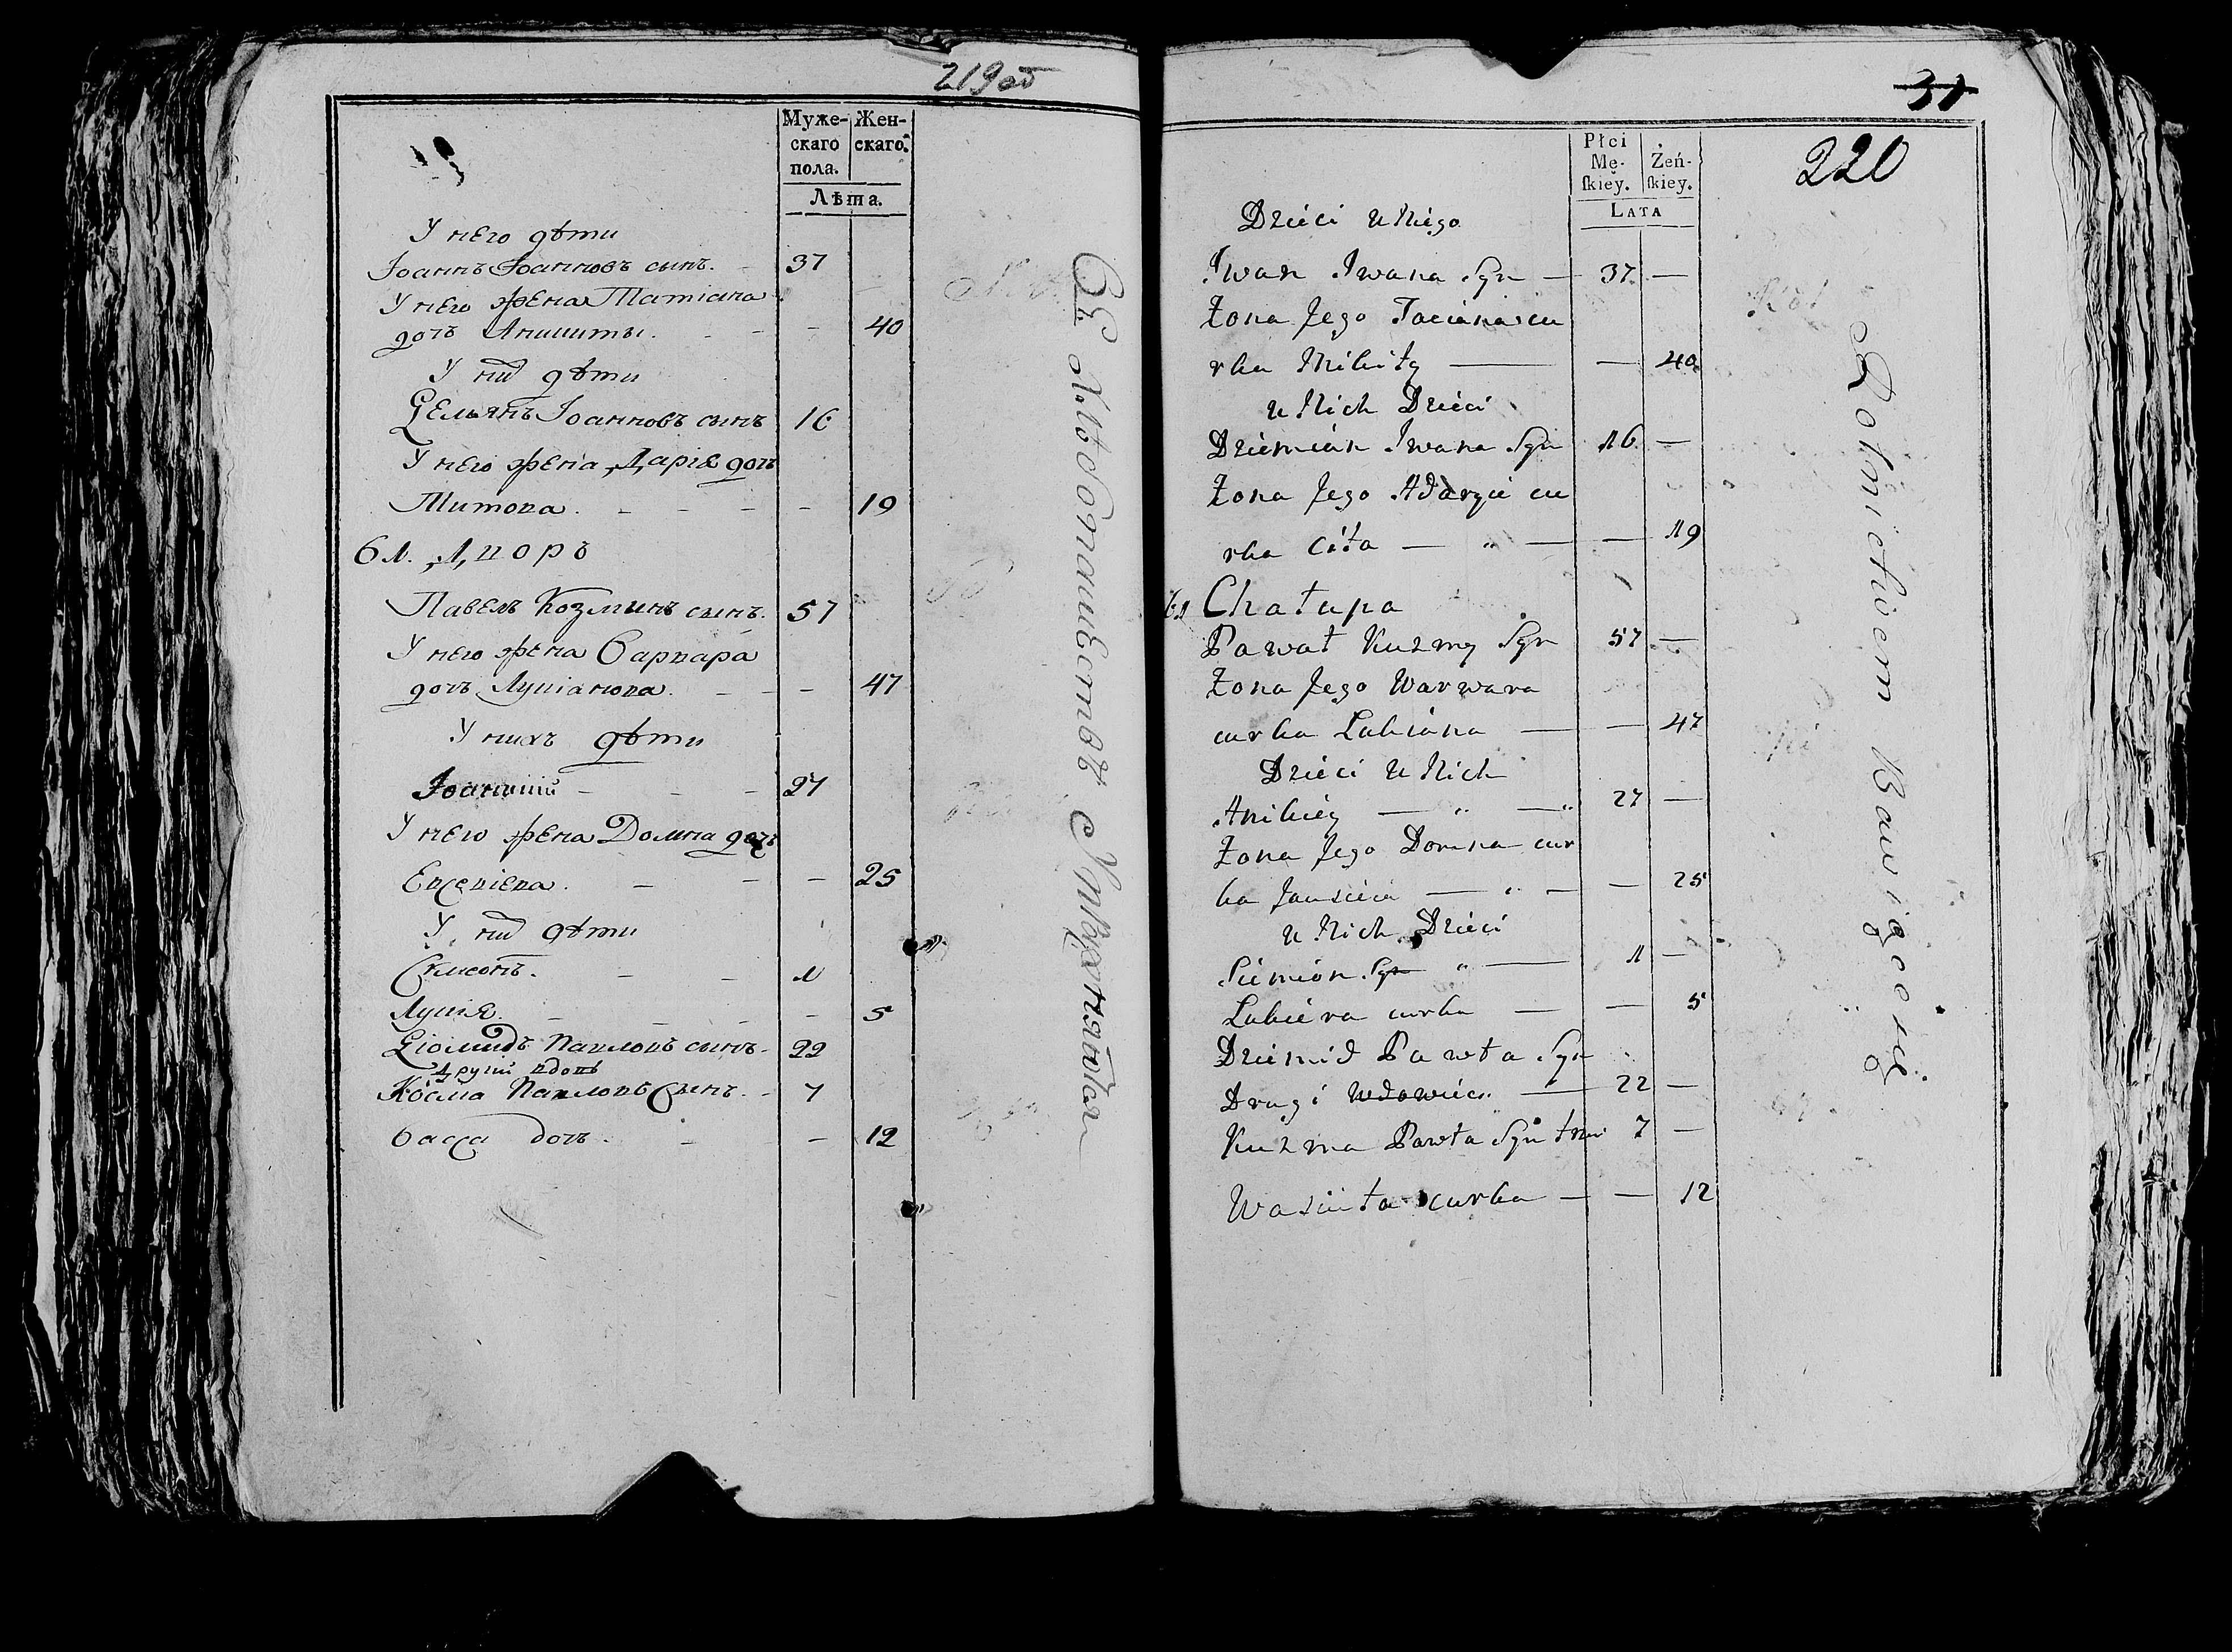 219 об
Муже-
скаго
пола.
Жен-
скаго.
Лѣта.
У него дѣти
Іоаннъ Іоанновъ сынъ. - 37
У него жена Татіана
дочь Аникиты. - - - 40
У ниⷯ дѣти
Демьянъ Іоанновъ сынъ 16
У него жена Дарія дочь
Титова. - - - - 19
61. Дворъ
Павелъ Козминъ сынъ. 57
У него жена Варвара
дочь Лукіанова. - - - 47
У нихъ дѣти
Іоанникій - - - 27
У него жена Домна дочь
Евсевіева. - - - 25
У ниⷯ дѣти
Симеонъ. - - 1
Лукія. - - - - 5
Діомидъ Павловъ сынъ - 22
другій вдовъ
Косма Павловъ сынъ. - 7
Васса дочь. - - 12
Въ Любопашествѣ с
31
220
Płci
Mę-
ſkiey.
Żeń-
ſkiey.
LATA
Dzieci u Niego
Iwan Iwana Syn — 37. —
Żona Jego Tacianna cu
rka Mikity — — 40
u Nich Dzieci
Dziemian Iwana Syn 16 —
Żona Jego Adarya cu
rka Cita — " — — 19
61 Chałupa
Paweł Kuzmy Syn 57 —
Żona Jego Warwara
curka Lukiana — — 47
Dzieci u Nich
Anikiey — " — " 27 —
Żona Jego Domna cur
ka Jauseia — " — — 25
u Nich Dzieci
Siemion Syn " — 1 —
Lukiera curka — — 5
Dziemid Pawła Syn
Drugi wdowiec — 22 —
Kuzma Pawła Syn trzeci 7 —
Wasiuta curka — — 12
Lotnictwem Bawiącey